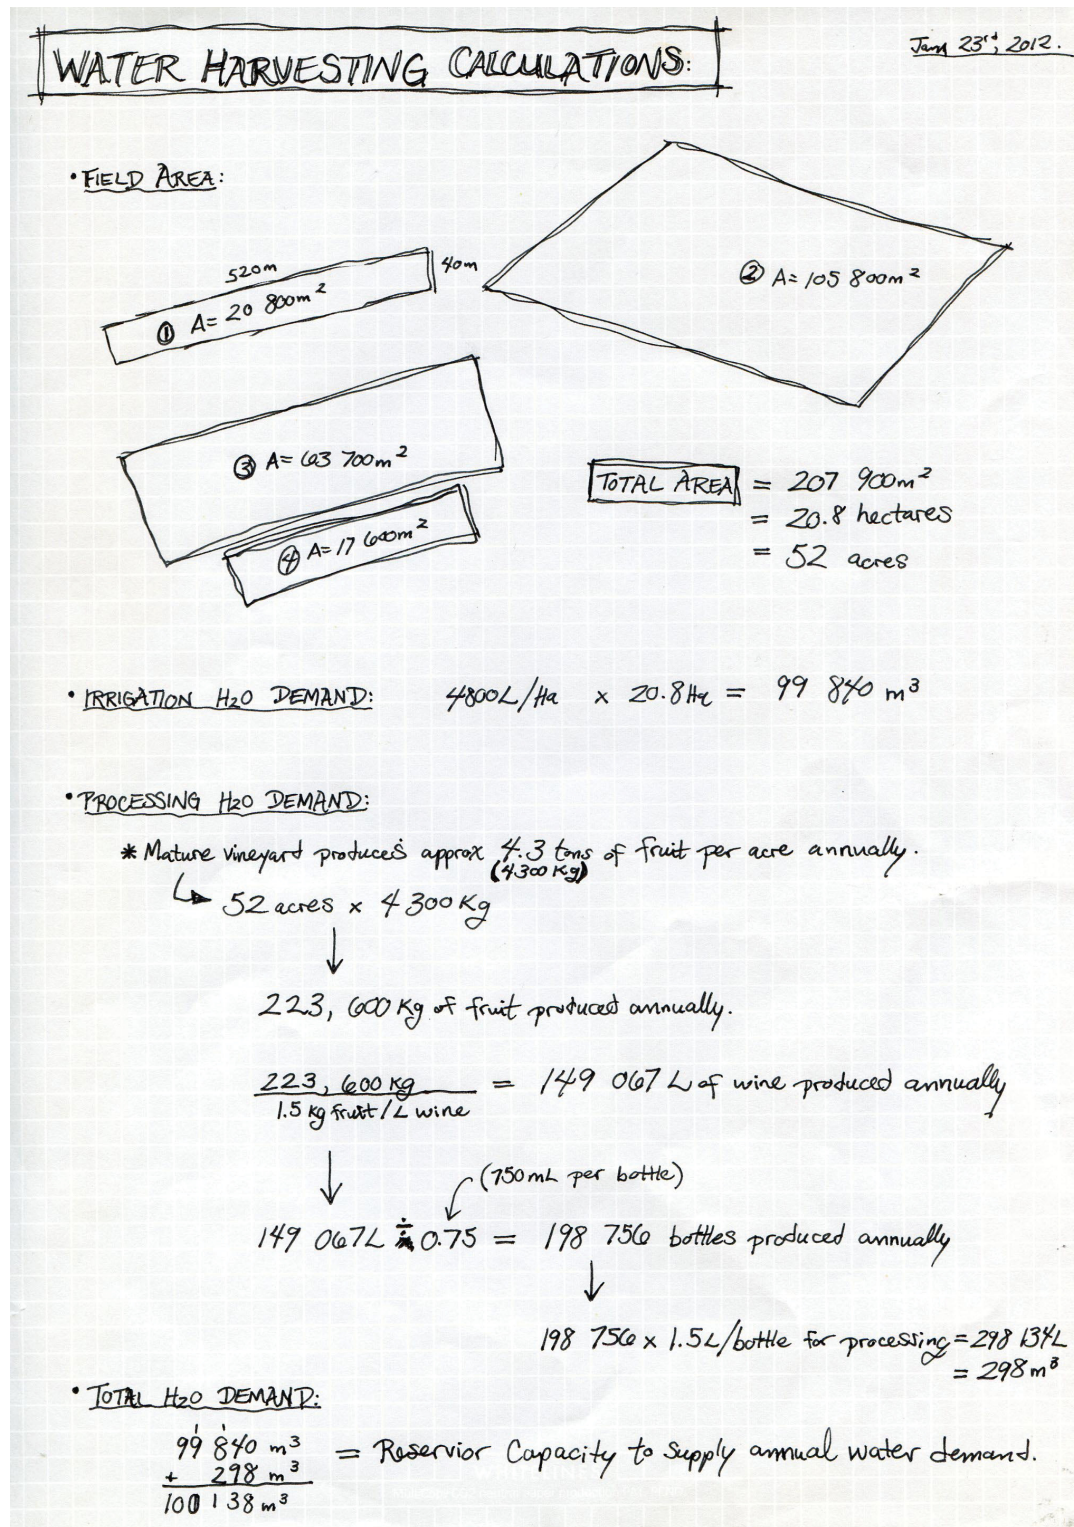 WATER HARVESTING CALCULATIONS:
Jan 23rd, 2012.
• FIELD AREA:
520m
40m
① A= 20 800m²
② A= 105 800m²
③ A= 63 700m²
④ A= 17 600m²
TOTAL AREA = 207 900m²
= 20.8 hectares
= 52 acres
• IRRIGATION H2O DEMAND: 4800L/Ha x 20.8Ha = 99 840 m³
• PROCESSING H2O DEMAND:
* Mature vineyard produces approx 4.3 tons of fruit per acre annually.
(4300 Kg)
↳ 52 acres x 4 300 Kg
↓
223, 600 Kg of fruit produced annually.
223, 600 kg = 149 067 L of wine produced annually
1.5 kg fruit / L wine
↓
(750mL per bottle)
149 067L ÷ 0.75 = 198 756 bottles produced annually
↓
198 756 x 1.5L/bottle for processing = 298 134L
= 298 m³
• TOTAL H2O DEMAND:
99 840 m³ = Reservior Capacity to supply annual water demand.
+ 298 m³
100 138 m³